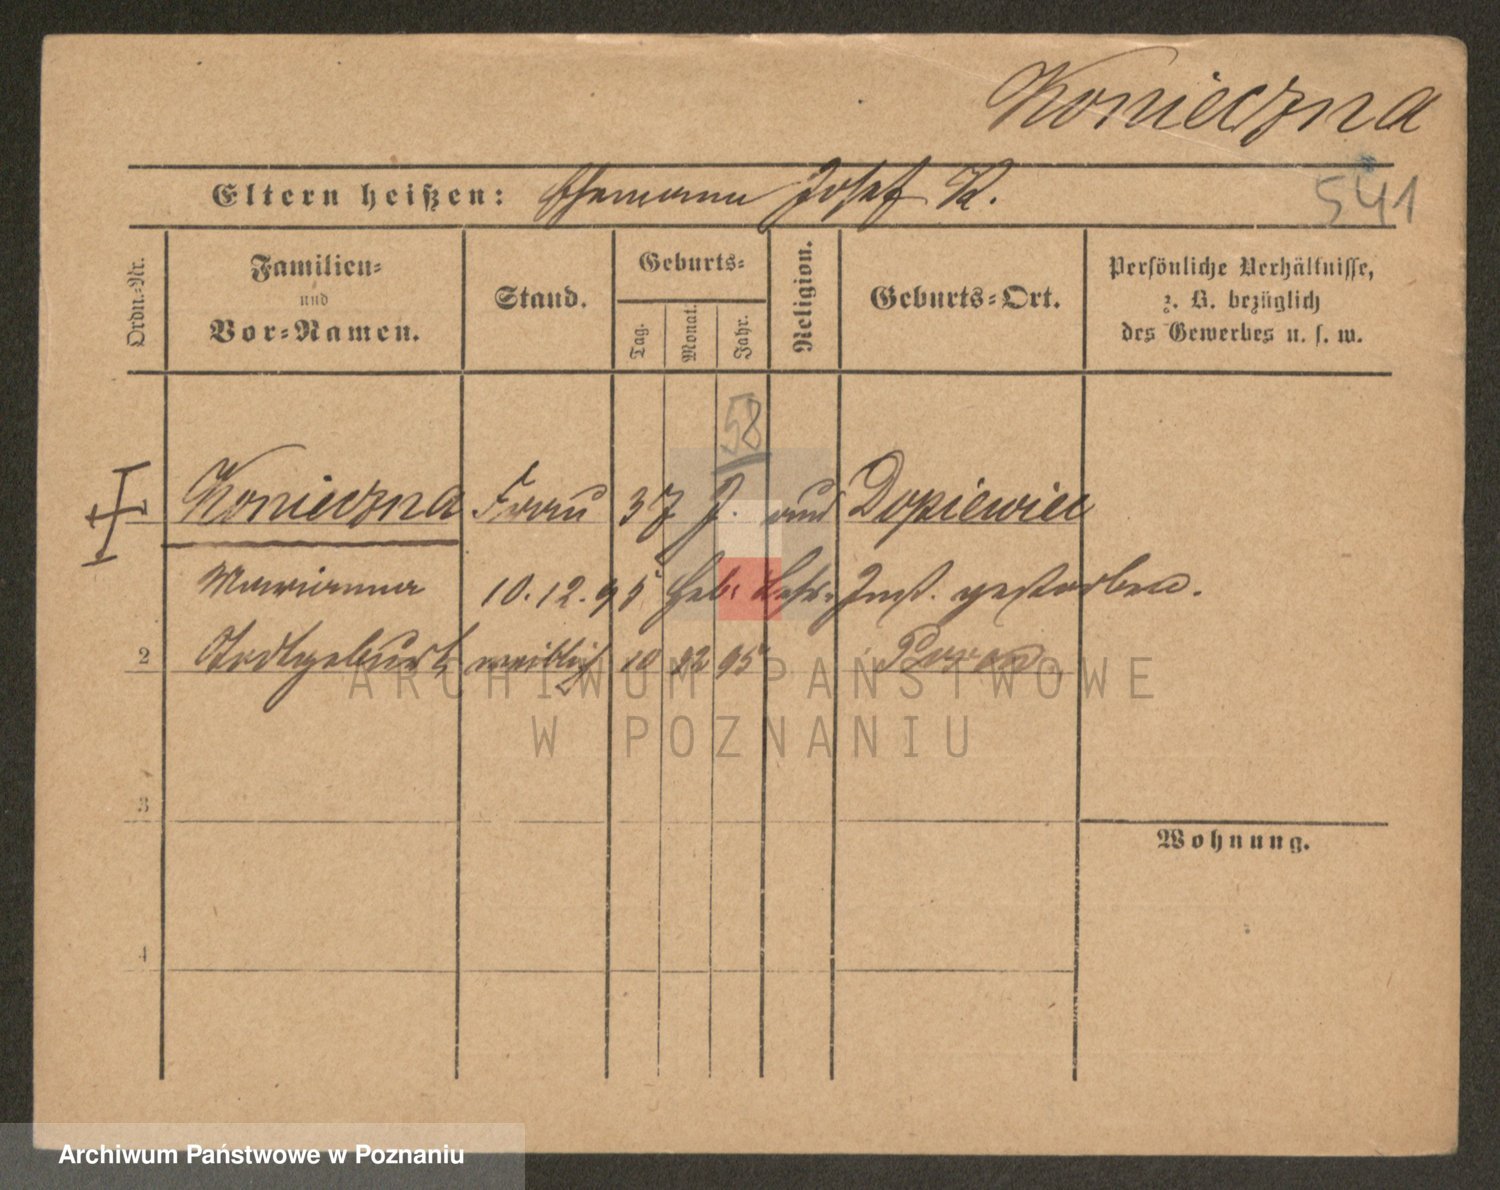 Konieczna
Eltern heißen: Ehemann Josef K.
541
Ordn.-Nr.
Familien-
und
Vor-Namen.
Stand.
Geburts-
Tag.
Monat.
Jahr.
Religion.
Geburts-Ort.
Persönliche Verhältnisse,
z. B. bezüglich
des Gewerbes u. s. w.
58
Konieczna Frau 37 J. aus Dopiewiec
Marianna 10.12.95 Heb. Lehr-Inst. gestorben.
2 Todtgeburt weiblich 10 12 95 Posen
3
Wohnung.
4
ARCHIWUM PAŃSTWOWE
W POZNANIU
Archiwum Państwowe w Poznaniu